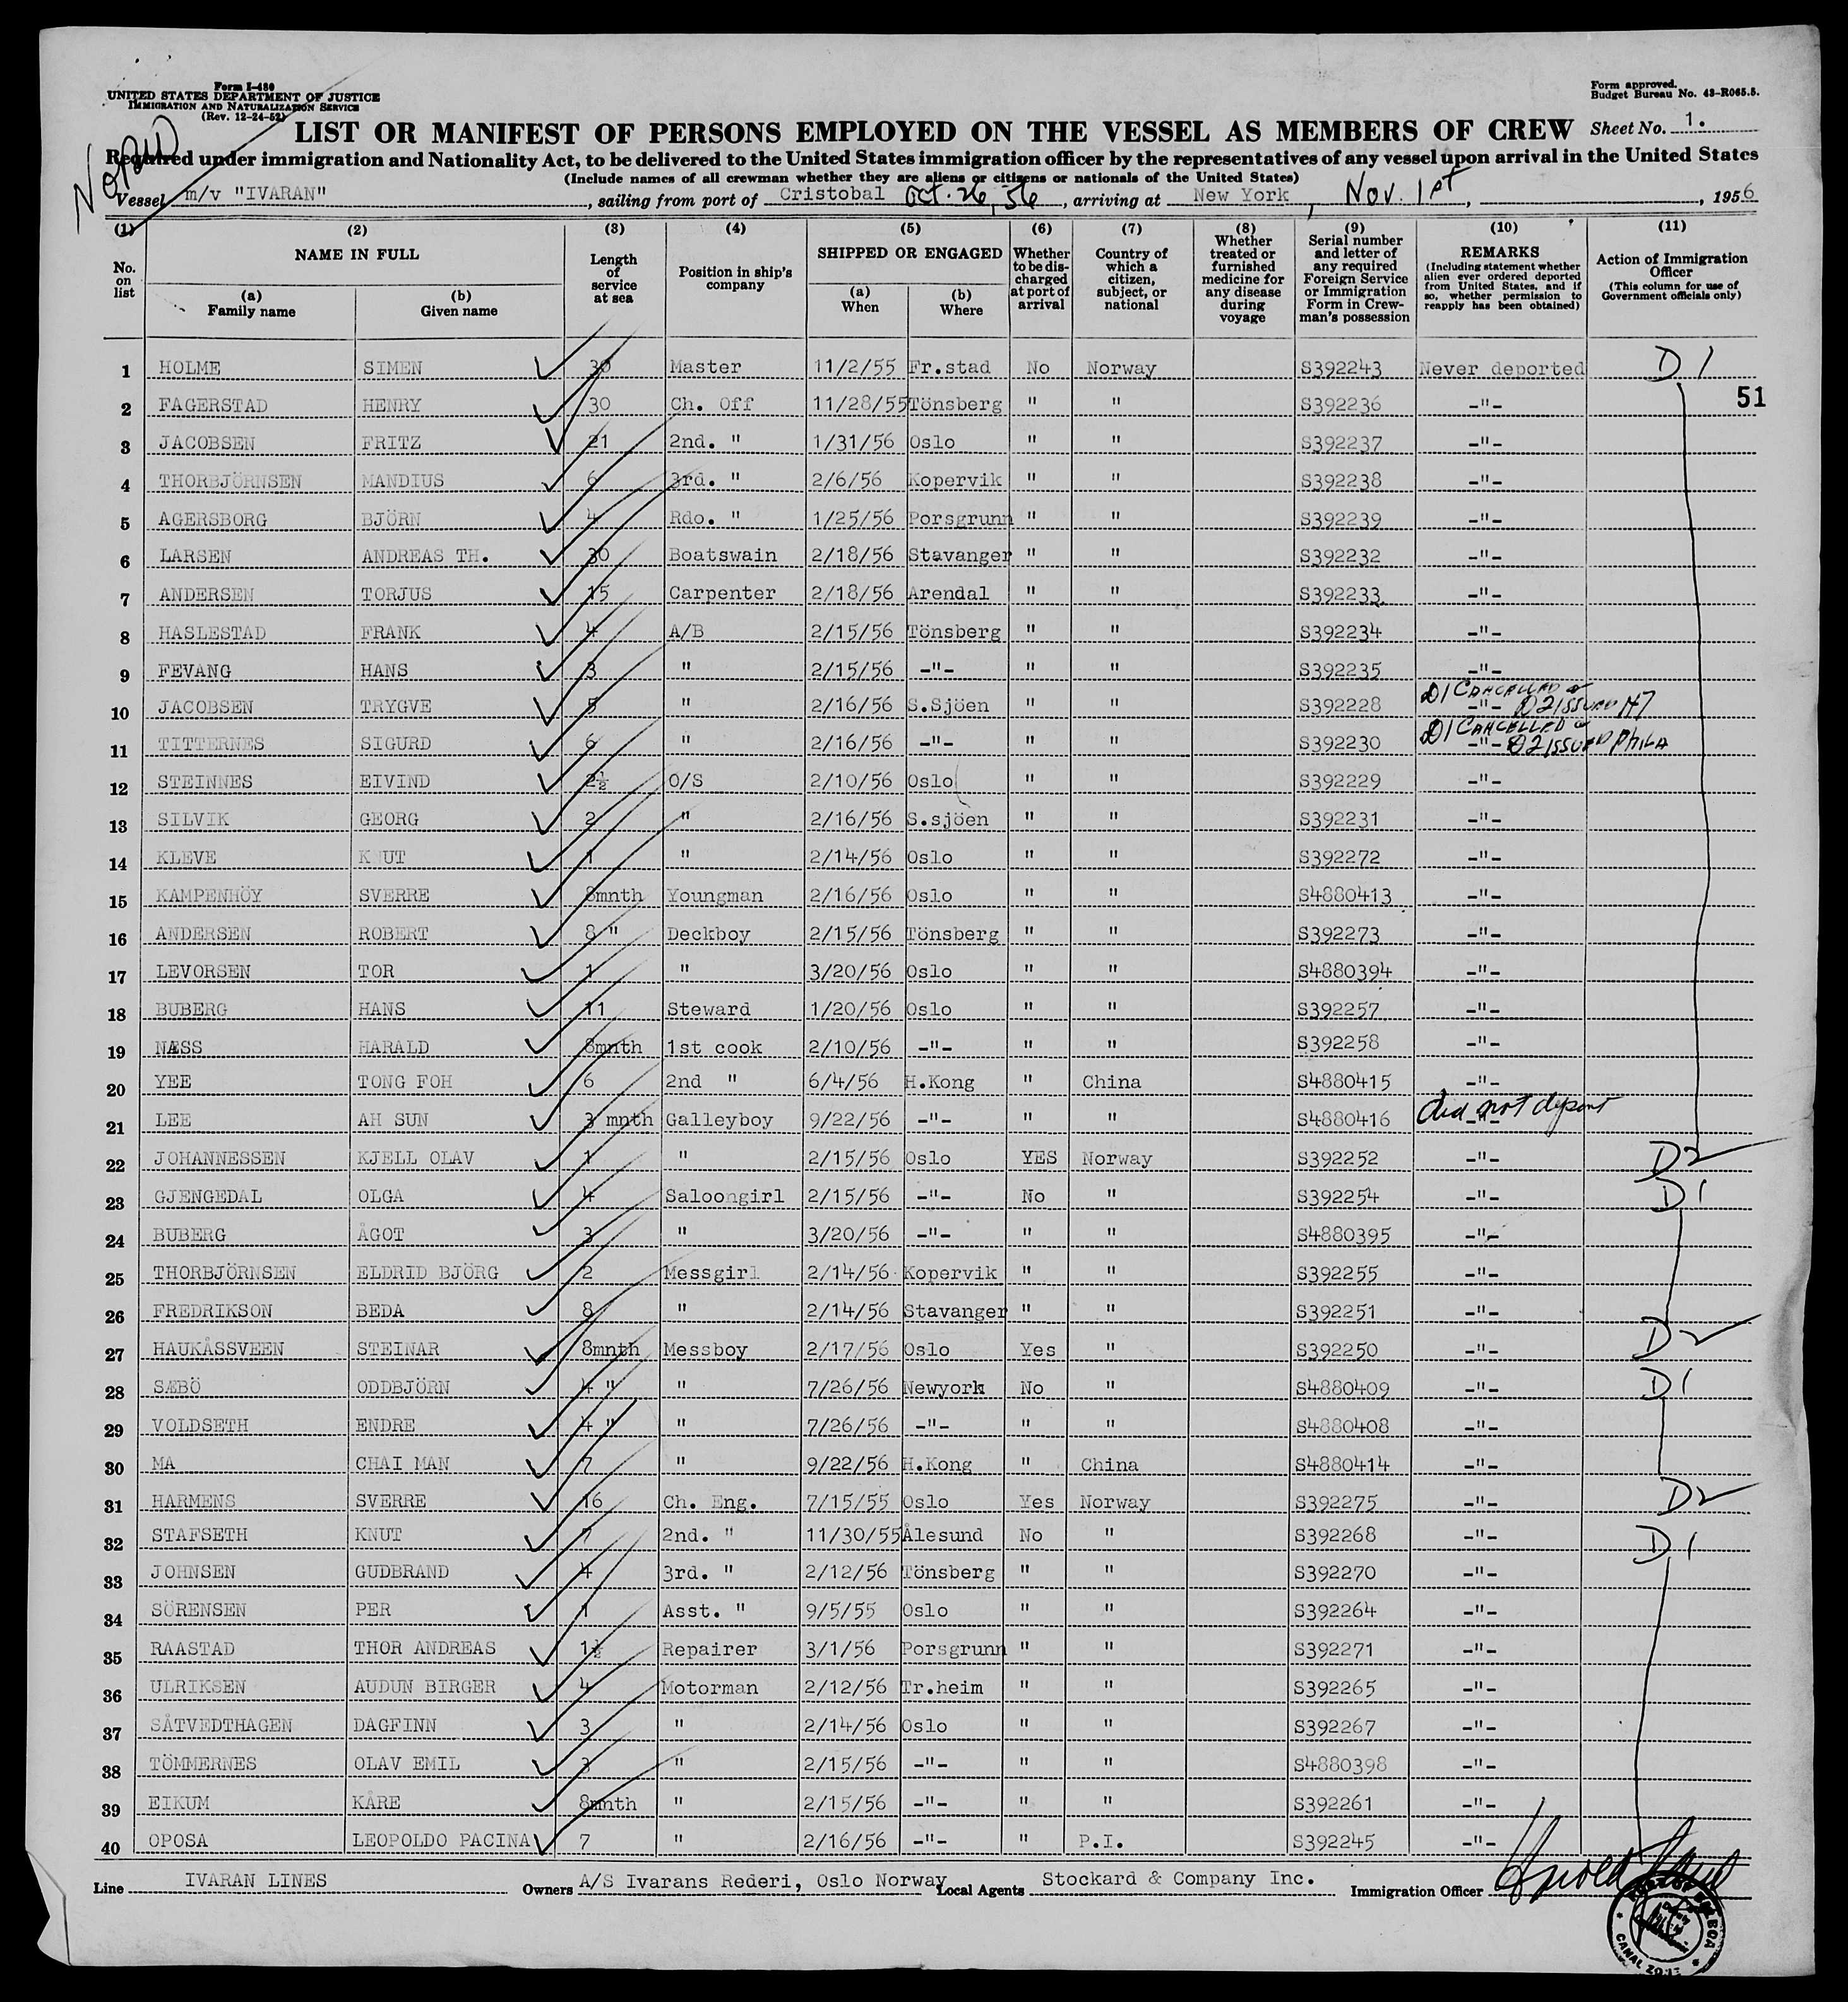 Form I-480
UNITED STATES DEPARTMENT OF JUSTICE
IMMIGRATION AND NATURALIZATION SERVICE
(Rev. 12-24-52)
Form approved.
Budget Bureau No. 43-R065.5.
LIST OR MANIFEST OF PERSONS EMPLOYED ON THE VESSEL AS MEMBERS OF CREW Sheet No. 1.
Required under immigration and Nationality Act, to be delivered to the United States immigration officer by the representatives of any vessel upon arrival in the United States
(Include names of all crewman whether they are aliens or citizens or nationals of the United States)
Vessel m/v "IVARAN", sailing from port of Cristobal Oct. 26, 56, arriving at New York, Nov. 1st, 1956
(1) No. on list (2) NAME IN FULL (a) Family name (b) Given name (3) Length of service at sea (4) Position in ship's company (5) SHIPPED OR ENGAGED (a) When (b) Where (6) Whether to be discharged at port of arrival (7) Country of which a citizen, subject, or national (8) Whether treated or furnished medicine for any disease during voyage (9) Serial number and letter of any required Foreign Service or Immigration Form in Crewman's possession (10) REMARKS (Including statement whether alien ever ordered deported from United States, and if so, whether permission to reapply has been obtained) (11) Action of Immigration Officer (This column for use of Government officials only)
1 HOLME SIMEN 30 Master 11/2/55 Fr.stad No Norway S392243 Never deported D1
51
2 FAGERSTAD HENRY 30 Ch. Off 11/28/55 Tönsberg " " S392236 -"-
3 JACOBSEN FRITZ 21 2nd. " 1/31/56 Oslo " " S392237 -"-
4 THORBJÖRNSEN MANDIUS 6 3rd. " 2/6/56 Kopervik " " S392238 -"-
5 AGERSBORG BJÖRN 4 Rdo. " 1/25/56 Porsgrunn " " S392239 -"-
6 LARSEN ANDREAS TH. 30 Boatswain 2/18/56 Stavanger " " S392232 -"-
7 ANDERSEN TORJUS 15 Carpenter 2/18/56 Arendal " " S392233 -"-
8 HASLESTAD FRANK 4 A/B 2/15/56 Tönsberg " " S392234 -"-
9 FEVANG HANS 3 " 2/15/56 -"- " " S392235 -"-
10 JACOBSEN TRYGVE 5 " 2/16/56 S.Sjöen " " S392228 -"- D1 CANCELLED & D2 ISSUED
11 TITTERNES SIGURD 6 " 2/16/56 -"- " " S392230 -"- D1 CANCELLED & D2 ISSUED PHILA
12 STEINNES EIVIND 2½ O/S 2/10/56 Oslo " " S392229 -"-
13 SILVIK GEORG 2 " 2/16/56 S.sjöen " " S392231 -"-
14 KLEVE KNUT 1 " 2/14/56 Oslo " " S392272 -"-
15 KAMPENHÖY SVERRE 8mnth Youngman 2/16/56 Oslo " " S4880413 -"-
16 ANDERSEN ROBERT 8 " Deckboy 2/15/56 Tönsberg " " S392273 -"-
17 LEVORSEN TOR 1 " 3/20/56 Oslo " " S4880394 -"-
18 BUBERG HANS 11 Steward 1/20/56 Oslo " " S392257 -"-
19 NÆSS HARALD 8mnth 1st cook 2/10/56 -"- " " S392258 -"-
20 YEE TONG FOH 6 2nd " 6/4/56 H.Kong " China S4880415 -"-
21 LEE AH SUN 3 mnth Galleyboy 9/22/56 -"- " " S4880416 -"- did not depart
22 JOHANNESSEN KJELL OLAV 1 " 2/15/56 Oslo YES Norway S392252 -"- D2
23 GJENGEDAL OLGA 4 Saloongirl 2/15/56 -"- No " S392254 -"- D1
24 BUBERG ÅGOT 3 " 3/20/56 -"- " " S4880395 -"-
25 THORBJÖRNSEN ELDRID BJÖRG 2 Messgirl 2/14/56 Kopervik " " S392255 -"-
26 FREDRIKSON BEDA 8 " 2/14/56 Stavanger " " S392251 -"-
27 HAUKÅSSVEEN STEINAR 8mnth Messboy 2/17/56 Oslo Yes " S392250 -"- D2
28 SÆBÖ ODDBJÖRN 4 " " 7/26/56 Newyork No " S4880409 -"- D1
29 VOLDSETH ENDRE 4 " " 7/26/56 -"- " " S4880408 -"-
30 MA CHAI MAN 7 " 9/22/56 H.Kong " China S4880414 -"-
31 HARMENS SVERRE 16 Ch. Eng. 7/15/55 Oslo Yes Norway S392275 -"- D2
32 STAFSETH KNUT 7 2nd. " 11/30/55 Ålesund No " S392268 -"- D1
33 JOHNSEN GUDBRAND 4 3rd. " 2/12/56 Tönsberg " " S392270 -"-
34 SÖRENSEN PER 1 Asst. " 9/5/55 Oslo " " S392264 -"-
35 RAASTAD THOR ANDREAS 1½ Repairer 3/1/56 Porsgrunn " " S392271 -"-
36 ULRIKSEN AUDUN BIRGER 4 Motorman 2/12/56 Tr.heim " " S392265 -"-
37 SÅTVEDTHAGEN DAGFINN 3 " 2/14/56 Oslo " " S392267 -"-
38 TÖMMERNES OLAV EMIL 3 " 2/15/56 -"- " " S4880398 -"-
39 EIKUM KÅRE 8mnth " 2/15/56 -"- " " S392261 -"-
40 OPOSA LEOPOLDO PACINA 7 " 2/16/56 -"- " P.I. S392245 -"-
Line IVARAN LINES Owners A/S Ivarans Rederi, Oslo Norway Local Agents Stockard & Company Inc. Immigration Officer
CANAL ZONE